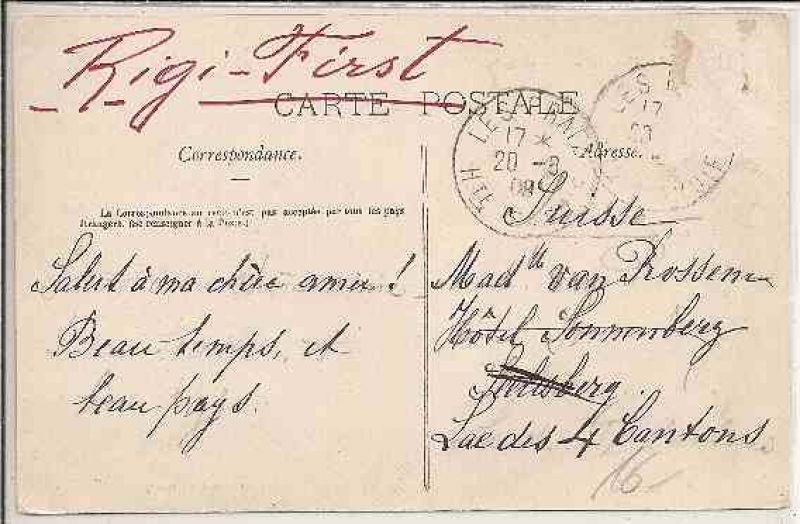 Rigi-First
CARTE POSTALE
Correspondance.
Adresse.
La Correspondance au recto n'est pas acceptée par tous les pays
étrangers. (se renseigner à la Poste.)
LES
17
20 -8
08
Hte
LES
17
20
Suisse
Salut à ma chère amie!
Beau temps, et
beau pays.
Madlle van Rossem
Hôtel Sonnenberg
Seelisberg.
Lac des 4 Cantons
16